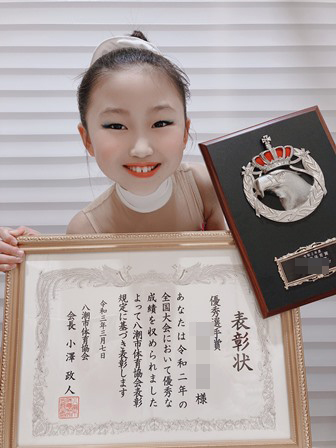 表彰状
優秀選手賞
様
あなたは令和二年の
全国大会において優秀な
成績を収められました
よって八潮市体育協会表彰
規定に基づき表彰します
令和三年三月七日
八潮市体育協会
会長 小澤政人